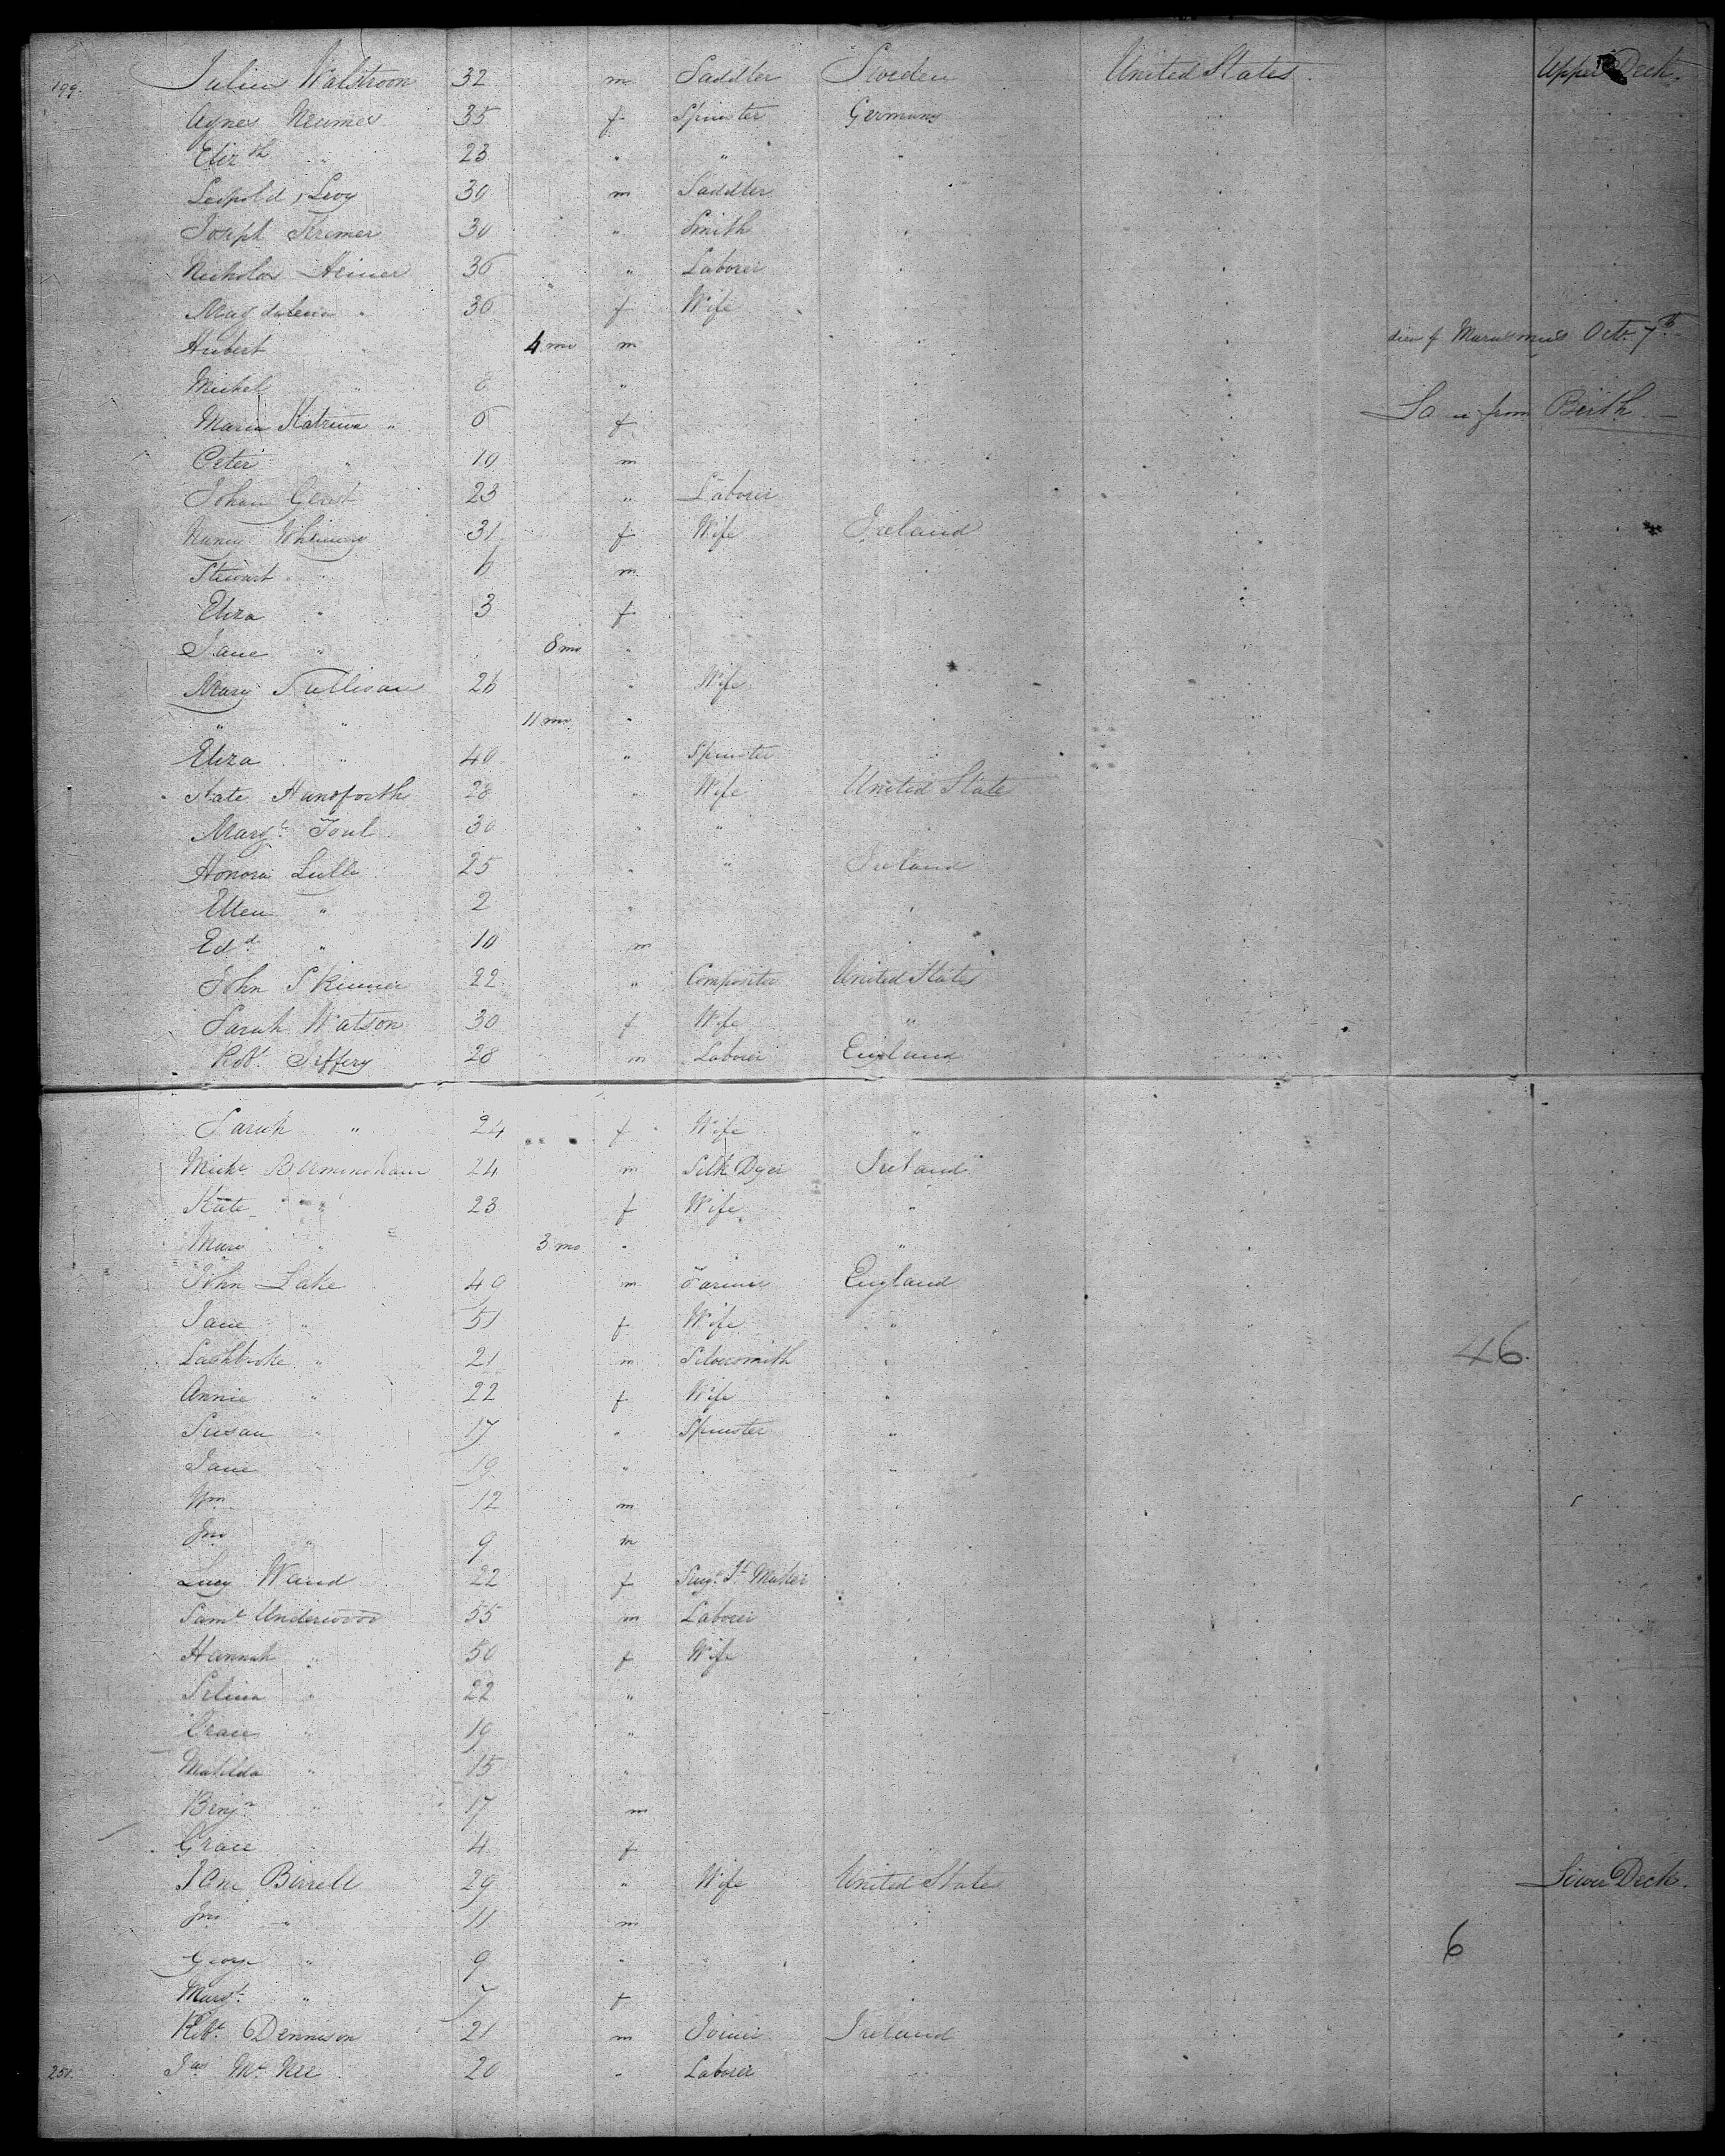 199. Julius Walstroon 32 m Saddler Sweden United States. Upper Deck.
Agnes Neumes 35 f Spinster Germany
Elizth " 23 " " "
Leopold, Levy 30 m Saddler
Joseph Kremer 30 " Smith
Nicholas Heiner 36 " Laborer
Magdalena " 36 f Wife
Hubert 4 mo m died of Marasmus Octr 7th
Michel " 8 "
Maria Katrina " 6 f from Birth
Peter " 10 m
Johan Gerst 23 " Laborer
Nancy 31 f Wife Ireland
Stewart " 6 m
Eliza " 3 f
Jane " 8 mo "
Mary Sullivan 26 " Wife
" " 11 mo "
Eliza " 40 " Spinster
Kate Handforth 28 " Wife United State
Margt. 30 " "
Honora 25 " " Ireland
Ellen " 2 "
Edd " 10 m
John Skinner 22 " Compositor United States
Sarah Watson 30 f Wife "
Robt. Jeffery 28 m Laborer England
Sarah " 24 f Wife "
Michl. Birmingham 24 m Silk Dyer Ireland
Kate " 23 f Wife "
Mary " 3 mo " "
John Lake 49 m Farmer England
Jane " 51 f Wife "
" 21 m Silversmith " 46.
Annie " 22 f Wife "
Susan " 17 " Spinster "
Jane " 19 " "
Wm " 12 m
Jno " 9 m
Lucy Wand 22 f
Saml Underwood 55 m Laborer
Hannah " 50 f Wife
Selina " 22 "
Grace " 19 "
Matilda " 15 "
Benjn " 17 m
Grace " 4 f
Jane Birrell 29 " Wife United States Lower Deck.
Jno " 11 m
George " 9 " 6
Margt. " 7 f
Robt. Dennison 21 m Joiner Ireland
251. Jas McNee 20 " Laborer